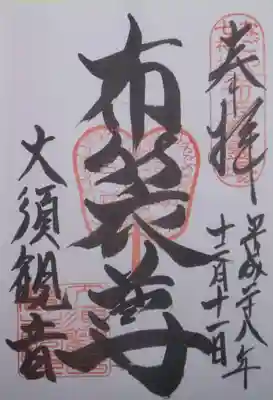 奉拝
平成二十八年
十二月十一日
布袋尊
大須観音